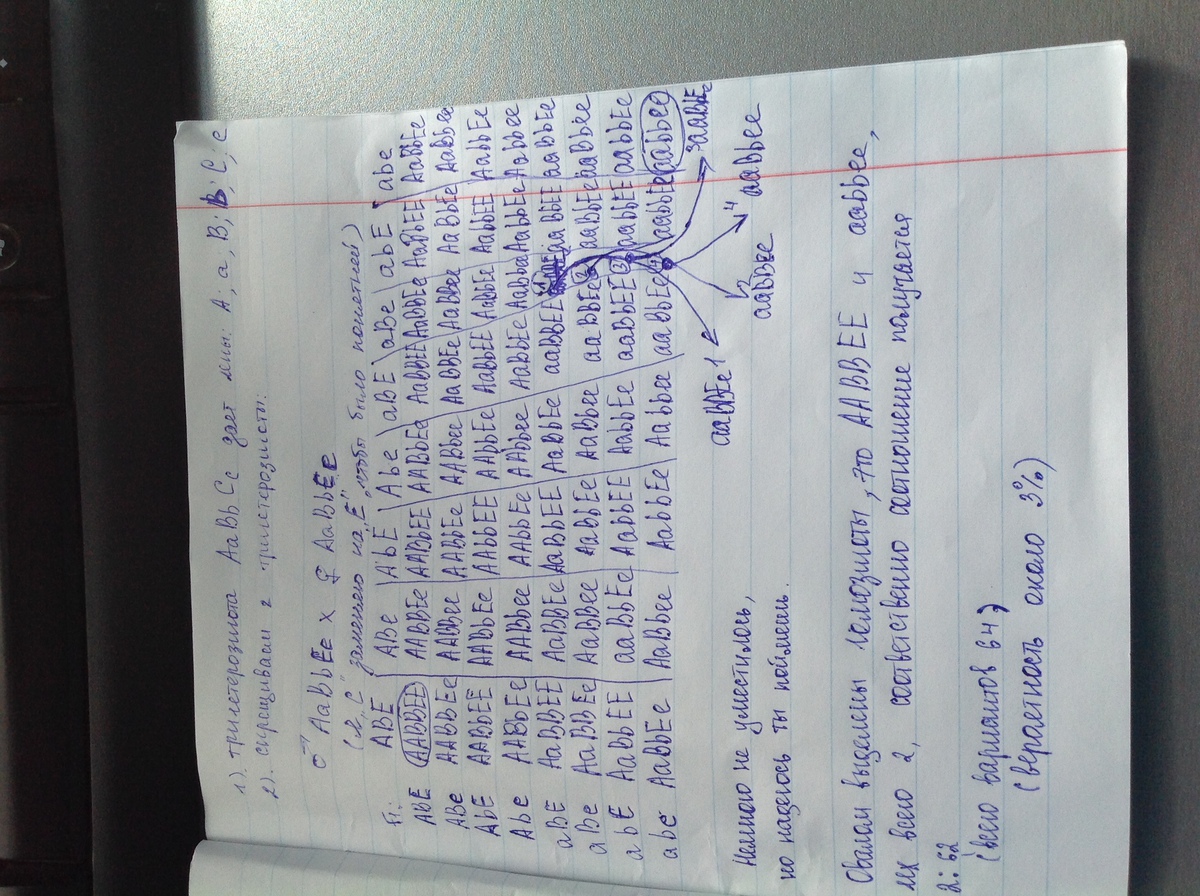 1). тригетерозигота AaBbCc дает гены: A; a, B; b, C, c
2). скрещиваем 2 тригетерозиготы:
♂ AaBbEe x ♀ AaBbEe
„C" заменила на „E", чтобы было понятней)
F1: ABE ABe AbE Abe aBE aBe abE abe
ABE AABBEE AABBEe AABbEE AABbEe AaBBEE AaBBEe AaBbEE AaBbEe
ABe AABBEe AABBee AABbEe AABbee AaBBEe AaBBee AaBbEe AaBbee
AbE AABbEE AABbEe AAbbEE AAbbEe AaBbEE AaBbEe AabbEE AabbEe
Abe AABbEe AABbee AAbbEe AAbbee AaBbEe AaBbee AabbEe Aabbee
aBE AaBBEE AaBBEe AaBbEE AaBbEe aaBBEE 1 aaBbEE aaBbEe
aBe AaBBEe AaBBee AaBbEe AaBbee aaBbEe 2 aaBbEe aaBbee
abE AaBbEE aaBbEe AabbEE AabbEe aaBbEE 3 aabbEE aabbEe
abe AaBbEe AaBbee AabbEe Aabbee aaBbEe 4 aabbEe aabbee
aaBBEe 1 2 aaBBee 4 aaBbee 3 aaBbEe
Немного не уместилось,
но надеюсь ты поймешь.
Овалом выделены гомозиготы, это AABBEE и aabbee,
их всего 2, соответственно соотношение получается
2:62
(всего вариантов 64)
(вероятность около 3%)